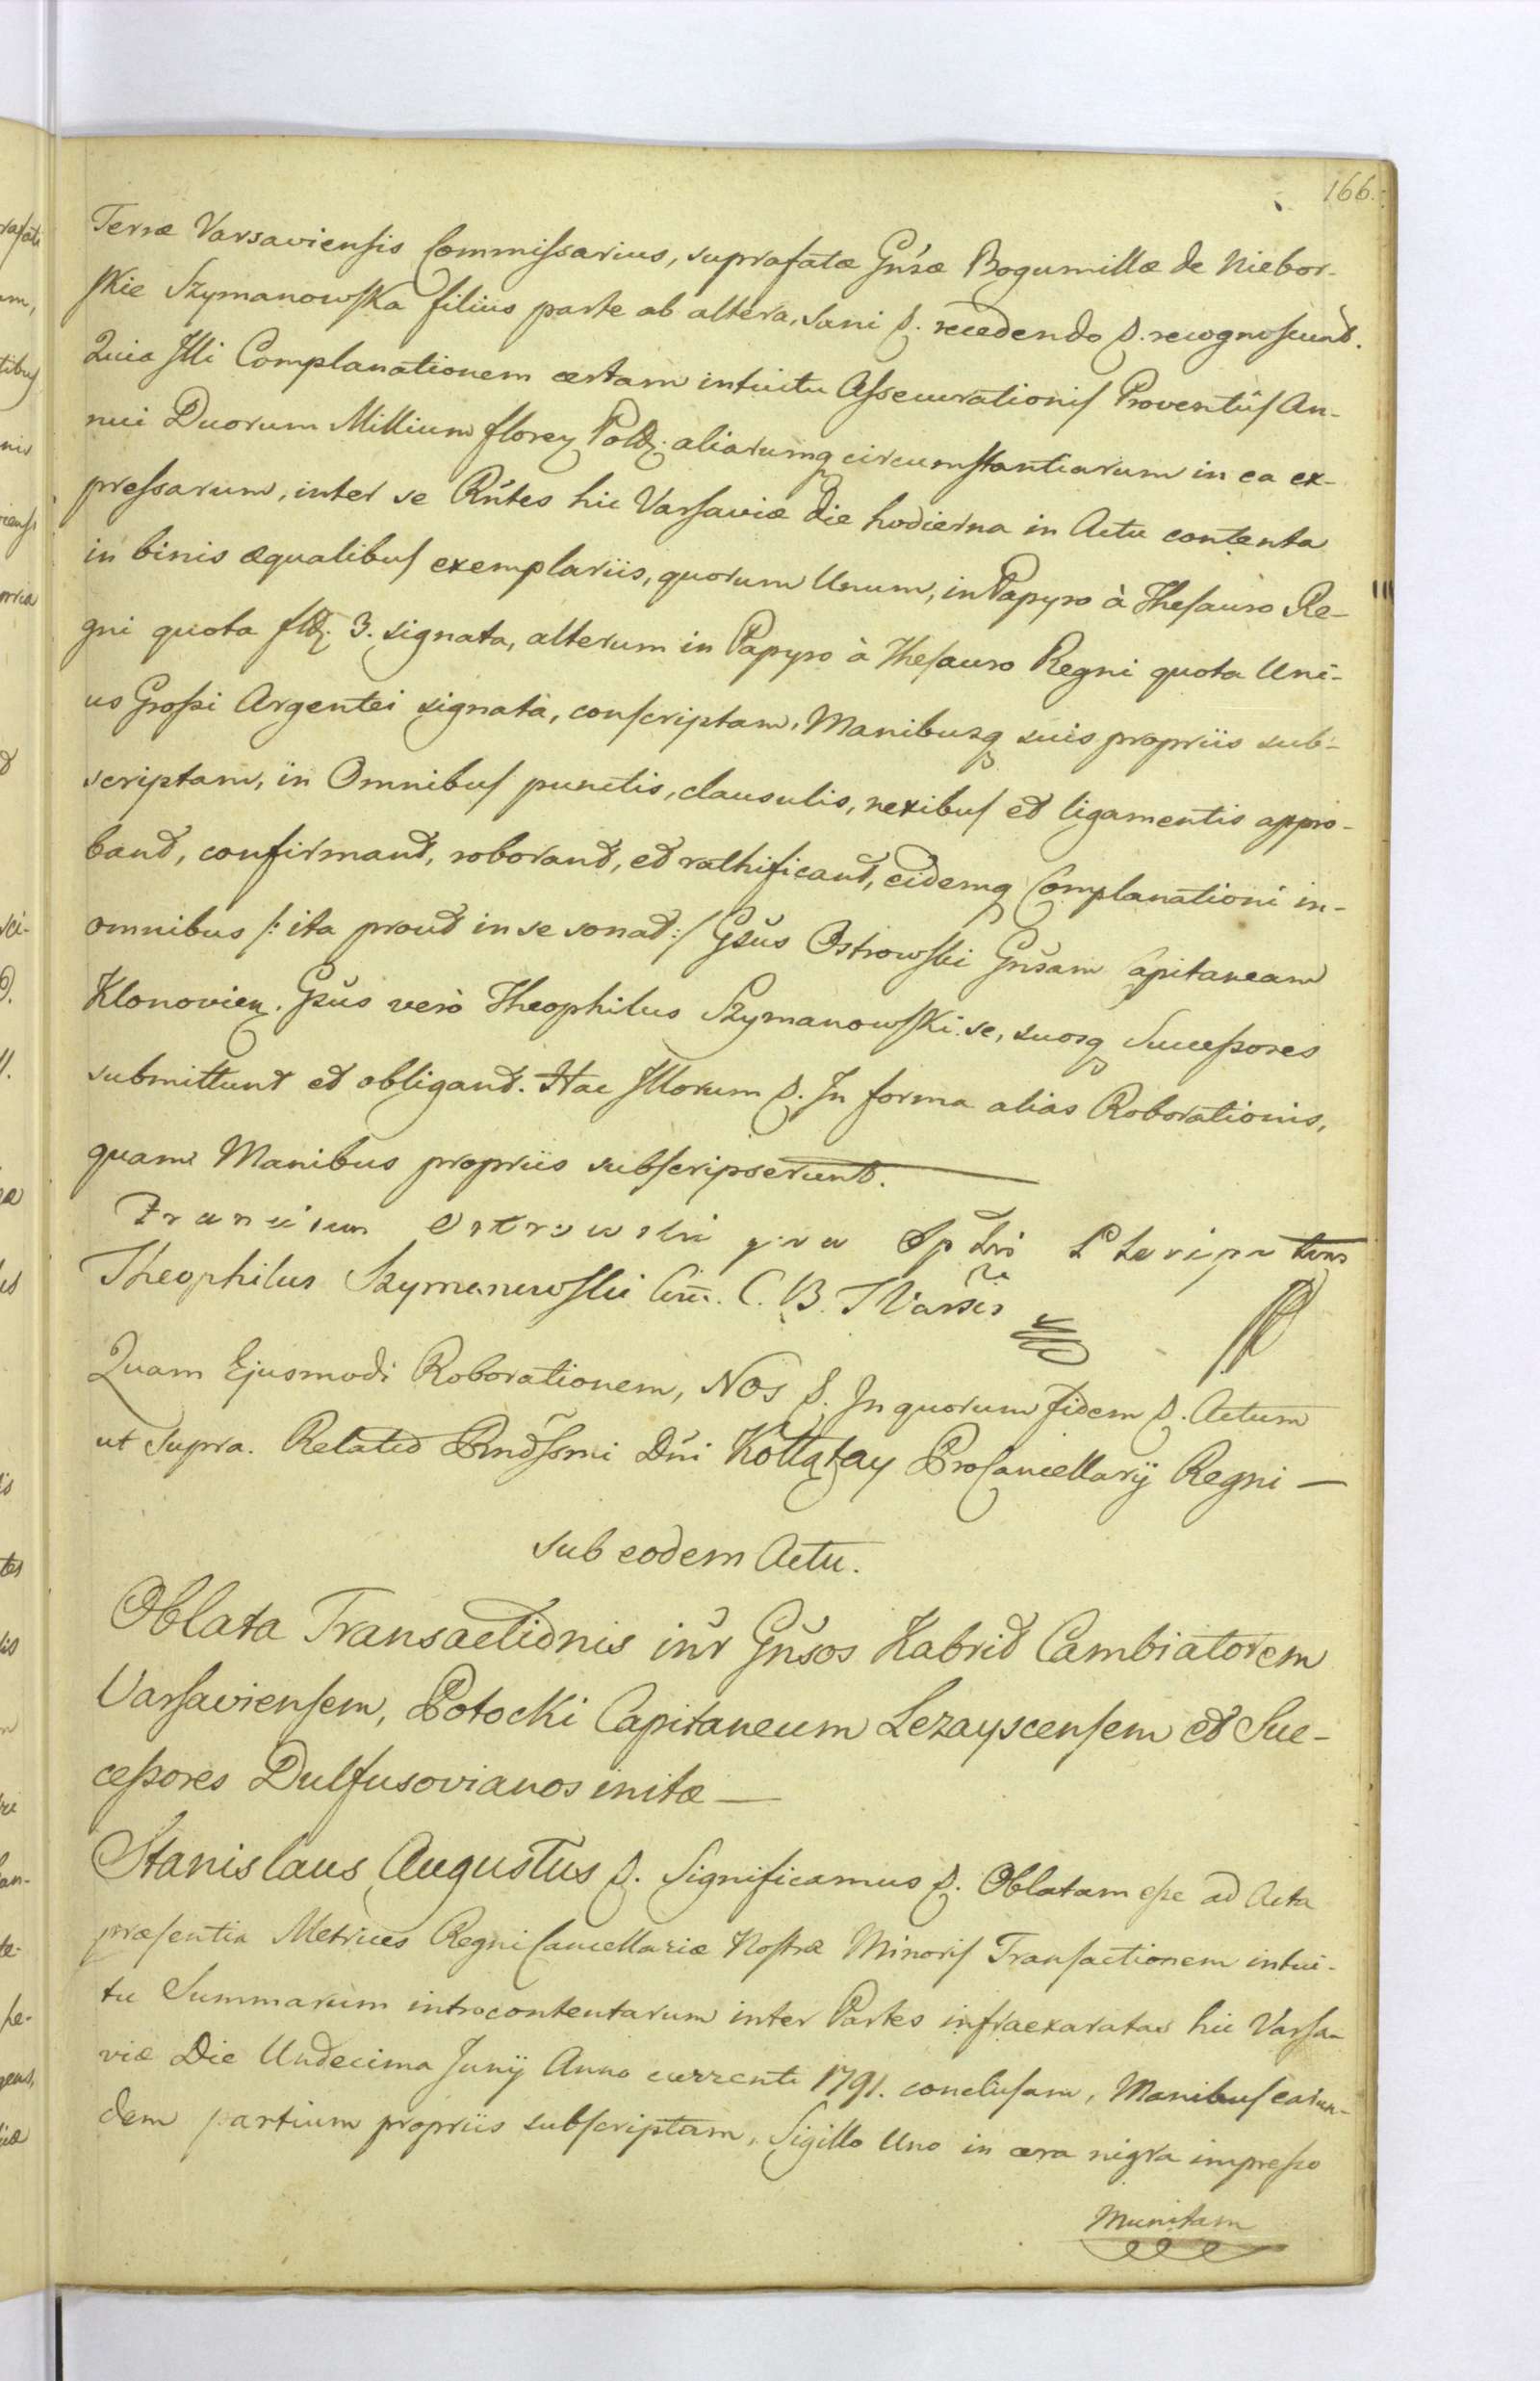 166.
Terræ Varsaviensis Commissarius, suprafatæ Gnsæ Bogumillæ de Niebor-
skie Szymanowska filius parte ab altera, sani p. recedendo p. recognoscunt.
Quia Illi Complanationem certam intuitu Assecurationis Proventûs An-
nui Duorum Millium floren Polk. aliarumq circumstantiarum in ea ex-
pressarum, inter se Rñtes hic Varsaviæ die hodierna in Actu contenta
in binis æqualibus exemplariis, quorum Unum, in Papyro à Thesauro Re-
gni quota flk. 3. signata, alterum in Papyro à Thesauro Regni quota Uni-
us Grossi Argentei signata, conscriptam, Manibusq suis propriis sub-
scriptam, in Omnibus punctis, clausulis, nexibus et ligamentis appro-
bant, confirmant, roborant, et rathificant, eidemq Complanationi in-
omnibus /: ita prout in se sonat :/ Gsus Ostrowski Gnsam Capitaneam
Klonovien. Gsus verò Theophilus Szymanowski se, suosq Successores
submittunt et obligant. Hac Illorum p. In forma alias Roborationis,
quam Manibus propriis subscripserunt.
Ostrowski
Theophilus Szymanowski C. B. T Varsis
Quam Ejusmodi Roborationem, Nos p. In quorum fidem p. Actum
ut supra. Relatio Rndssmi Dni Kołłątay ProCancellarij Regni —
sub eodem Actu.
Oblata Transactionis intr Gnsos Kabrit Cambiatorem
Varsaviensem, Potocki Capitaneum Lezayscensem et Suc-
cessores Dulfusovianos initæ —
Stanislaus Augustus p. Significamus p. Oblatam esse ad Acta
præsentia Metrices Regni Cancellariæ Nostræ Minoris Transactionem intui-
tu Summarum introcontentarum inter Partes infraexaratas hic Varsa-
viæ Die Undecima Junij Anno currenti 1791. conclusam, Manibus earun-
dem partium propriis subscriptam, Sigillo Uno in cera nigra impresso
Munitam